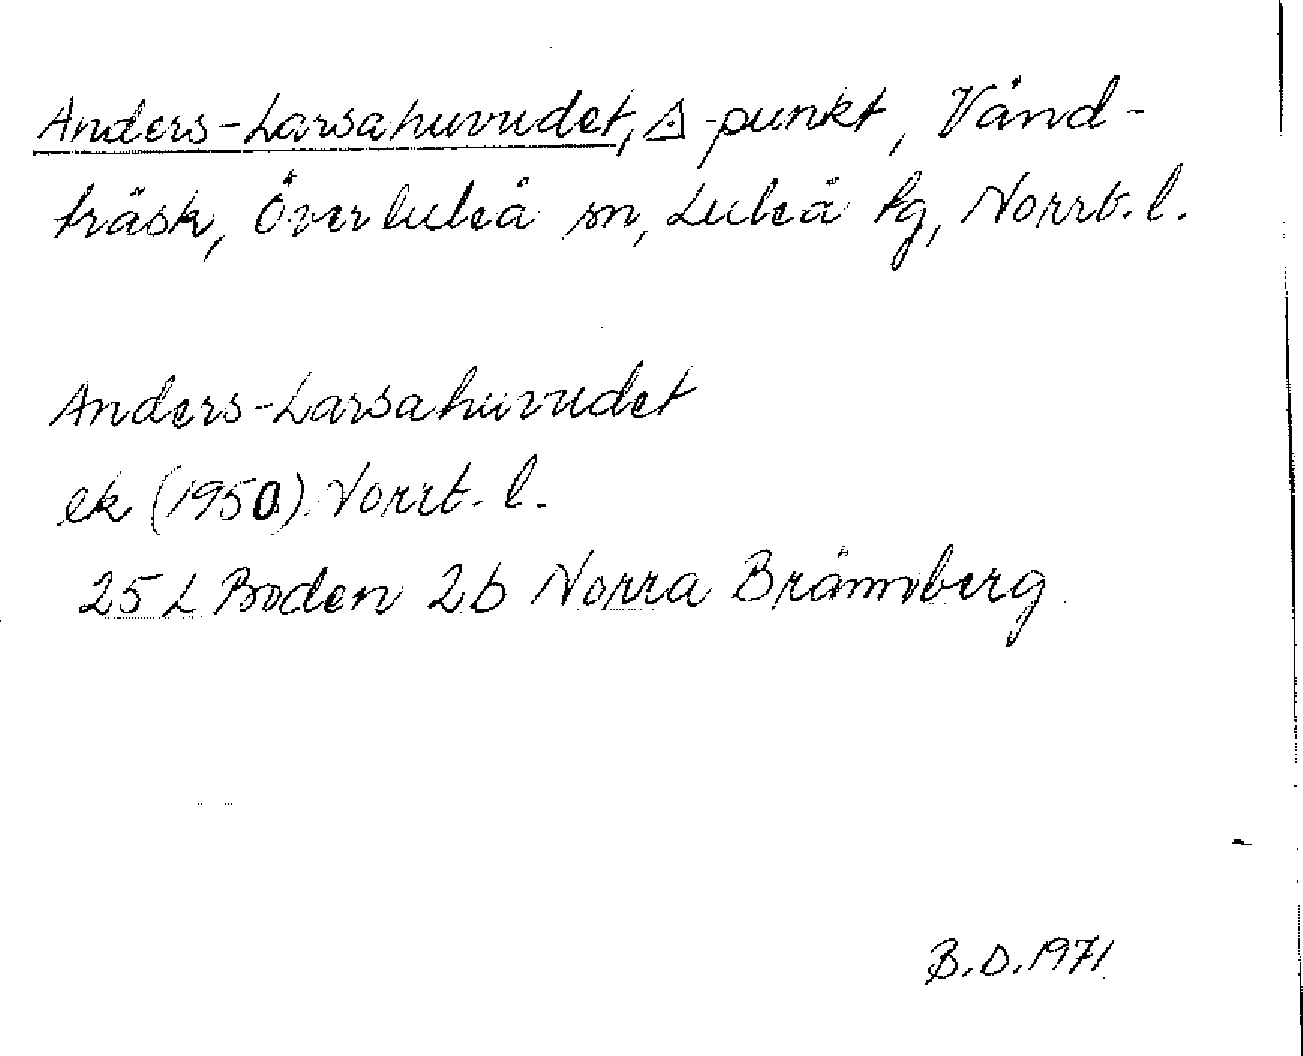 Anders-Larsahuvudet, △-punkt, Vånd-
träsk, Överluleå sn, Luleå tg, Norrb. l.
Anders-Larsahuvudet
ek (1950) Norrb. l.
25 L Boden 2b Norra Brännberg
B.D. 1971